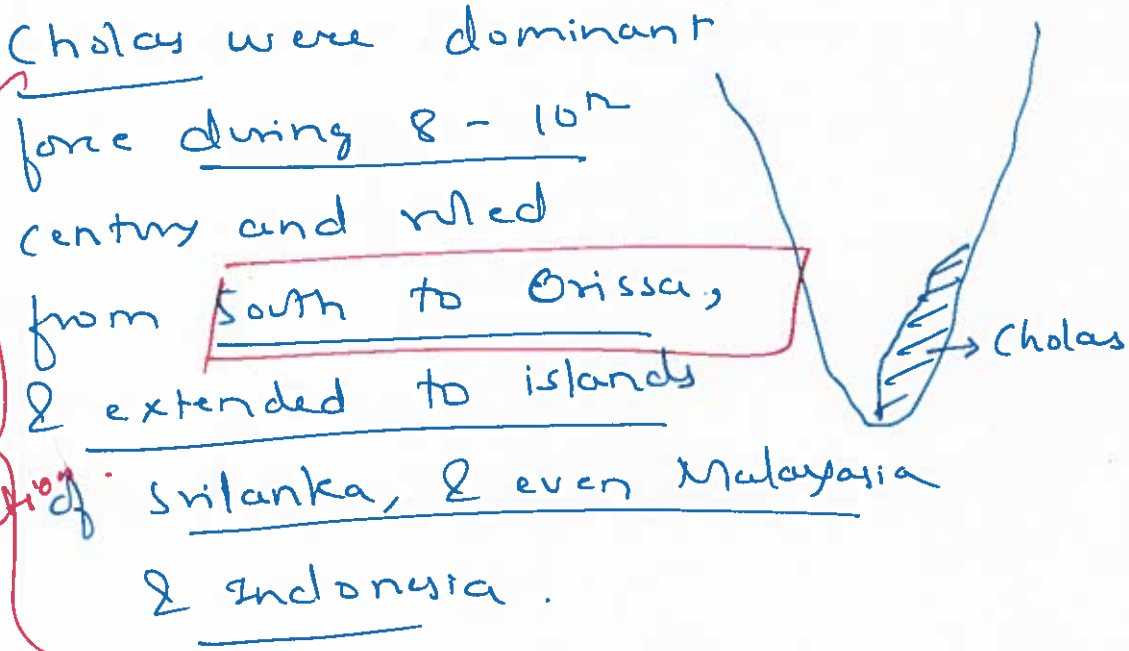 Cholas were dominant
force during 8 - 10th
century and ruled
from South to Orissa,
& extended to islands
of Srilanka, & even Malaysia
& Indonesia.
Cholas